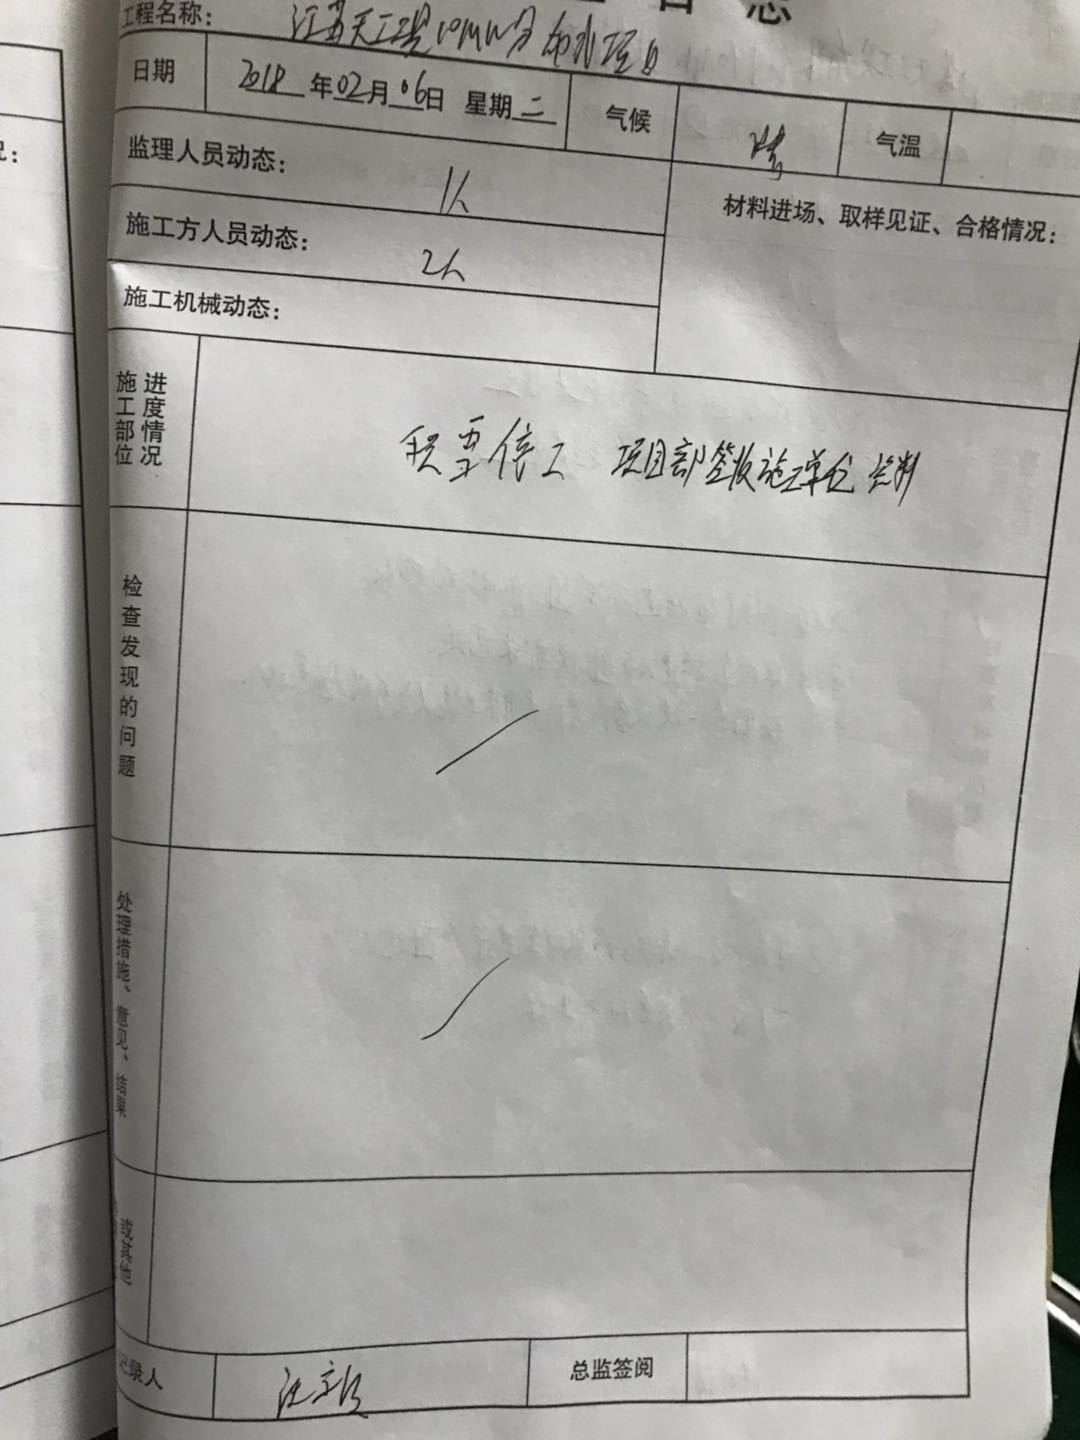 工程名称: 江苏天工昊10MW分布式项目
日期 2018年02月06日 星期二 气候 晴 气温
监理人员动态: 1人
材料进场、取样见证、合格情况:
施工方人员动态: 2人
施工机械动态:
施工部位进度情况 积雪停工 项目部签收施工单位资料
检查发现的问题
处理措施、意见、结果
或其他
记录人 总监签阅